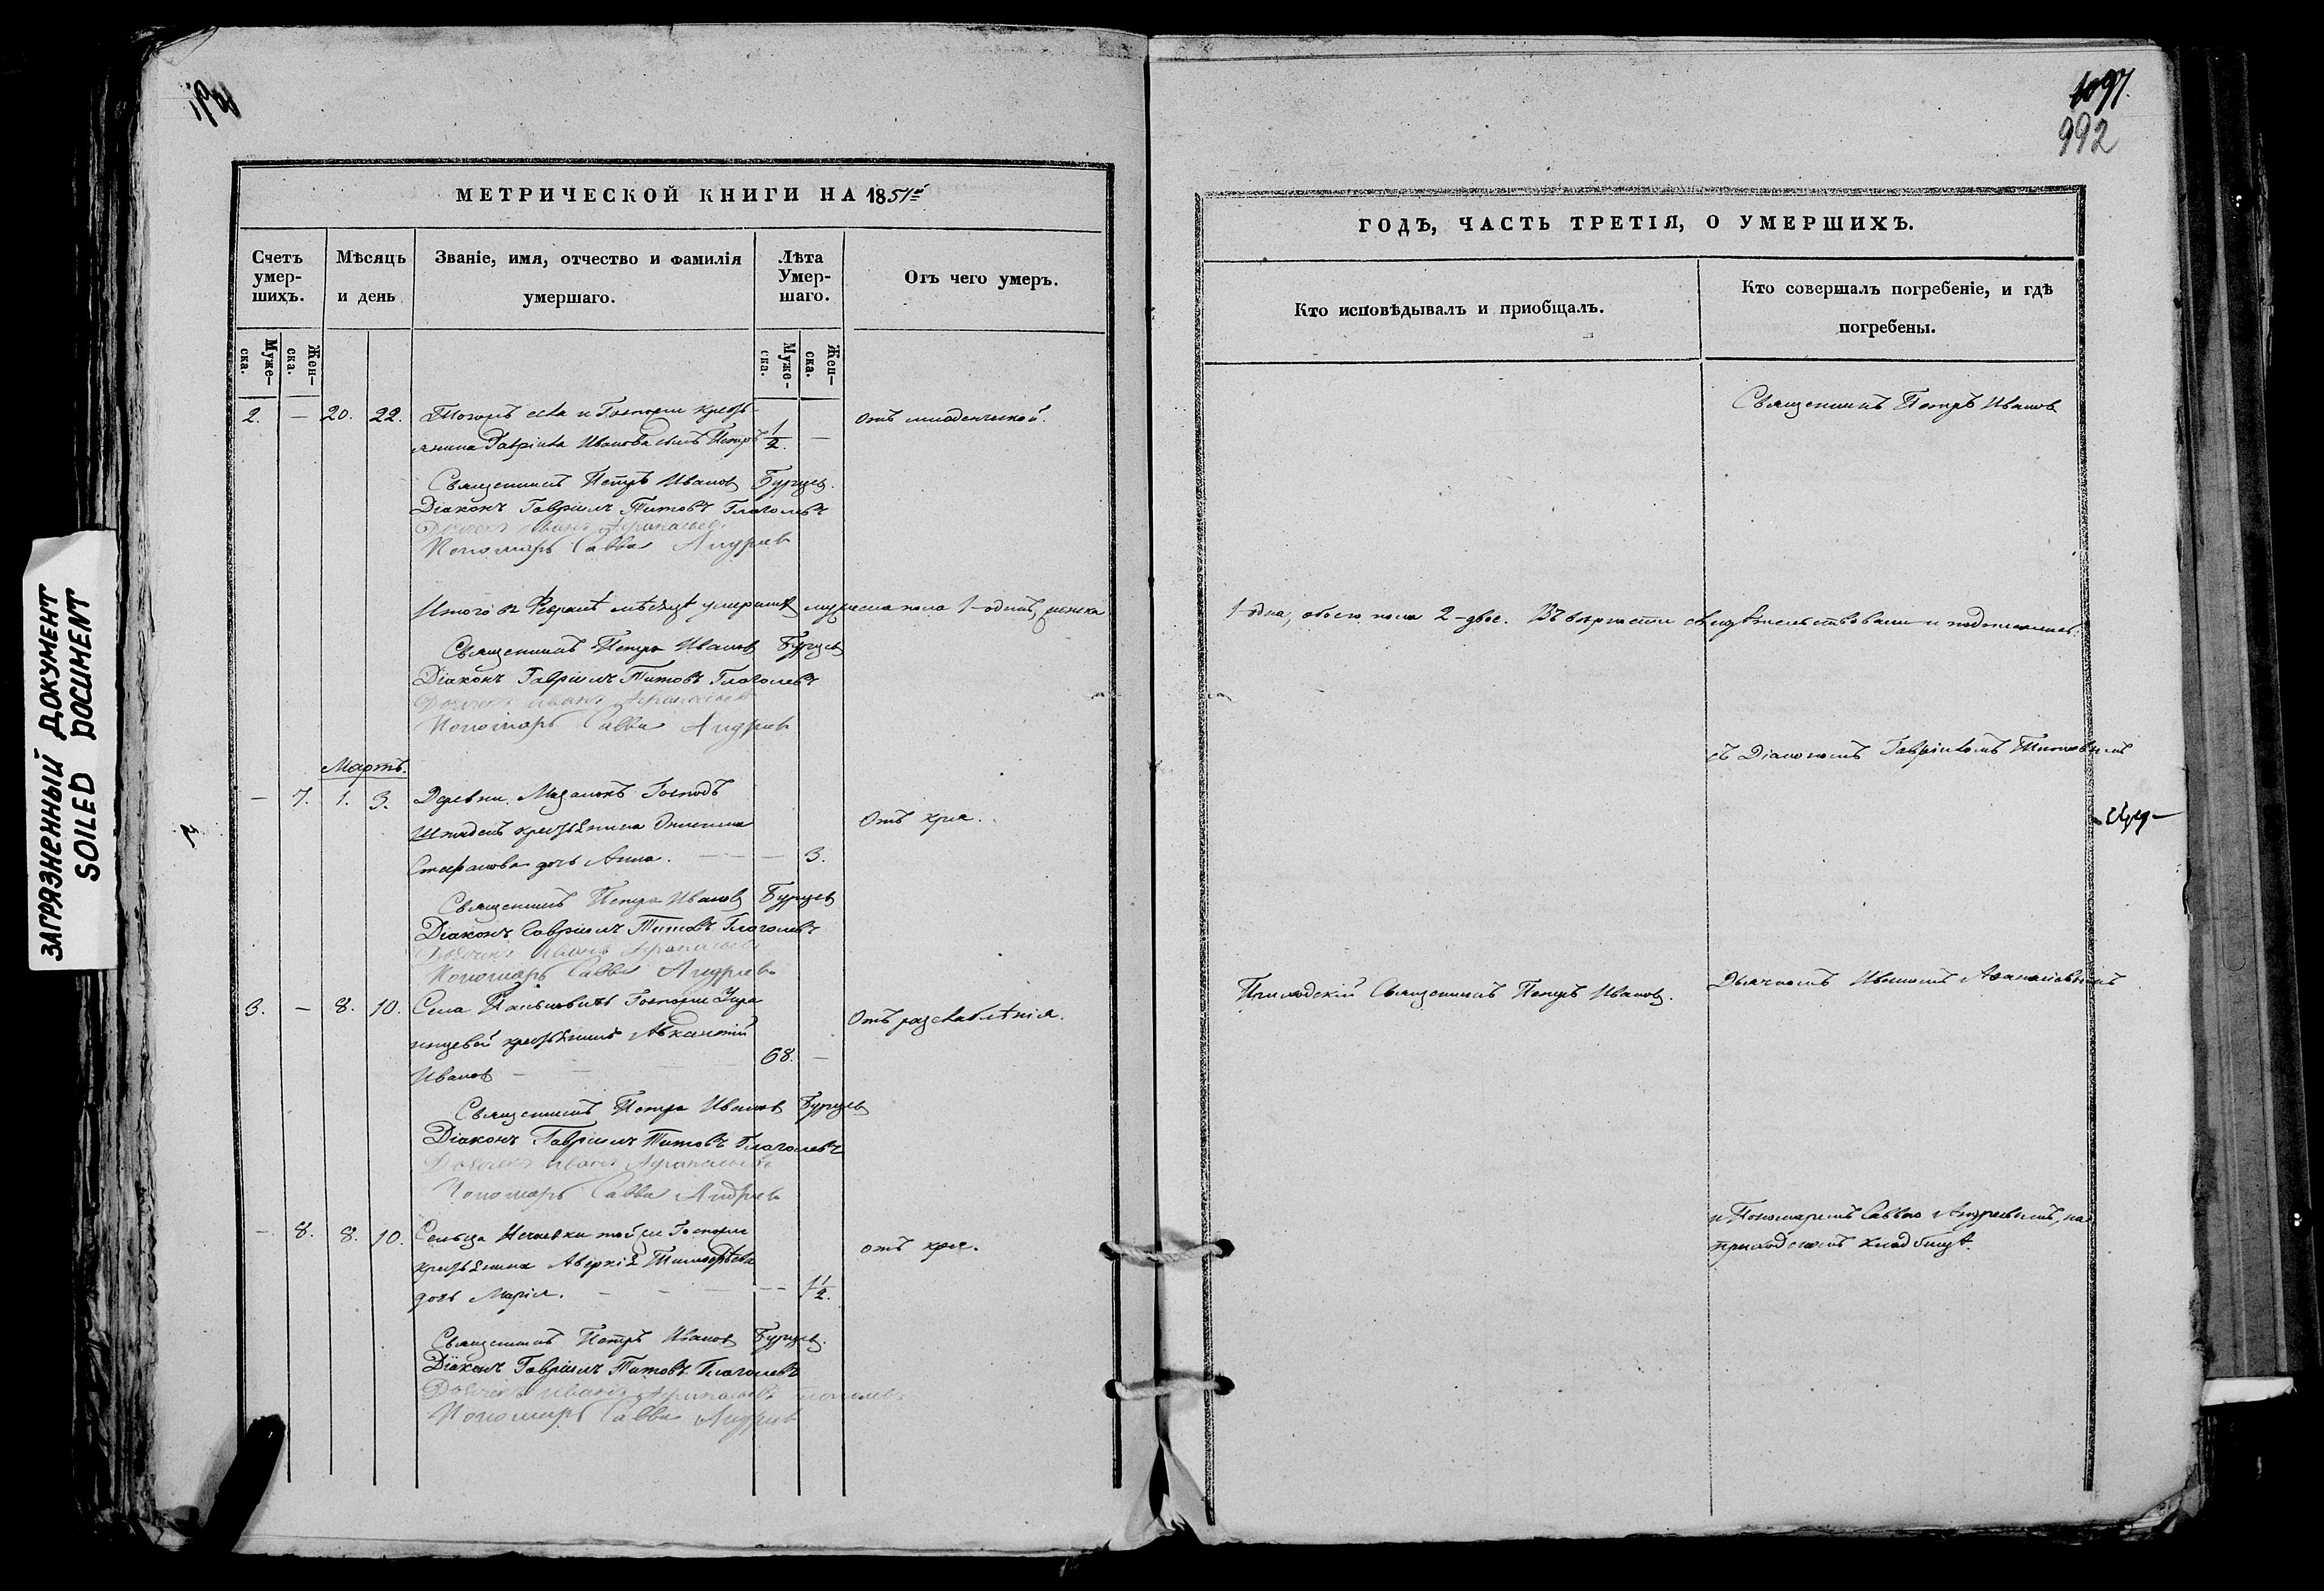 1097.
992
МЕТРИЧЕСКОЙ КНИГИ НА 1851й
Счетъ умер-шихъ.
Мѣсяцъ и день
Званіе, имя, отчество и фамилія умершаго.
Лѣта Умер-шаго.
Отъ чего умеръ.
Муже-ска.
Жен-ска.
Муже-ска.
Жен-ска.
2. — 20. 22. села и Госпожи кресть-
янина Гавріила Иванова сынъ Петръ 1/2. —
Отъ младенческой.
Священникъ Петръ Иванов Бурцев.
Діаконъ Гавріилъ Титовъ Глаголевъ
Дьячекъ Иванъ Афанасьевъ
Пономарь Савва Андреевъ
Итого въ Февралѣ мѣсяцѣ умершихъ мужеска пола 1-одинъ, женска
Священникъ Петръ Иванов Бурцев
Діаконъ Гавріилъ Титовъ Глаголевъ
Дьячекъ Иванъ Афанасьевъ
Пономарь Савва Андреевъ
Мартъ.
— 7. 1. 3. Деревни Господъ
крестьянина
Стефанова дочь Анна. — — — 3.
Отъ крка.
Священникъ Петръ Иванов Бурцев
Діаконъ Гавріилъ Титовъ Глаголевъ
Дьячекъ Иванъ Афанасьевъ
Пономарь Савва Андреевъ
3. — 8. 10. Села Госпожи
крестьянинъ
Иванов — 68. —
Отъ разслаблѣнія.
Священникъ Петръ Иванов Бурцев
Діаконъ Гавріилъ Титовъ Глаголевъ
Дьячекъ Иванъ Афанасьевъ
Пономарь Савва Андреевъ
— 8. 8. 10. Сельца той же Госпожи
крестьянина Аверкія Тимофѣева
дочь Марія. — — — 1 1/2.
отъ крка.
Священникъ Петръ Иванов Бурцев.
Діаконъ Гавріилъ Титовъ Глаголевъ
Дьячекъ Иванъ Афанасьевъ
Пономарь Савва Андреевъ
ГОДЪ, ЧАСТЬ ТРЕТІЯ, О УМЕРШИХЪ.
Кто исповѣдывалъ и пріобщалъ.
Кто совершалъ погребеніе, и гдѣ
погребены.
Священникъ Петръ Иванов
1-одна, обоего пола 2-двое. Въ вѣрности свидѣтельствовали и подписались:
съ Діакономъ Гавріиломъ Титовымъ
Приходскій Священникъ Петръ Иванов.
Дьячкомъ Иваномъ Афанасьевымъ
и Пономаремъ Саввою Андреевымъ, на
приходскомъ кладбищѣ.
ЗАГРЯЗНЕННЫЙ ДОКУМЕНТ
SOILED DOCUMENT